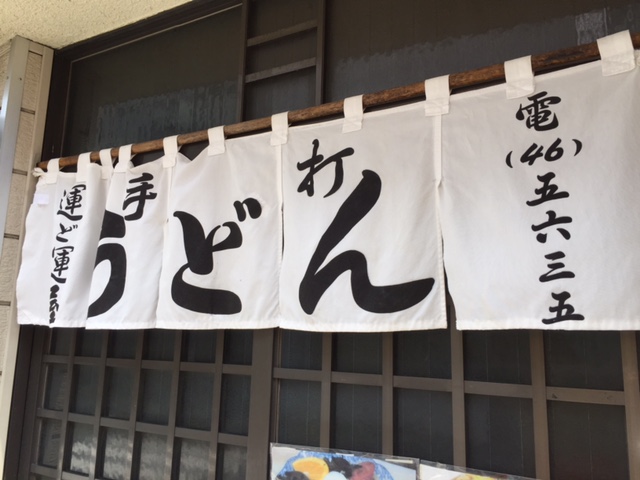 運ど運
手打
うどん
電
(46)
五六三五